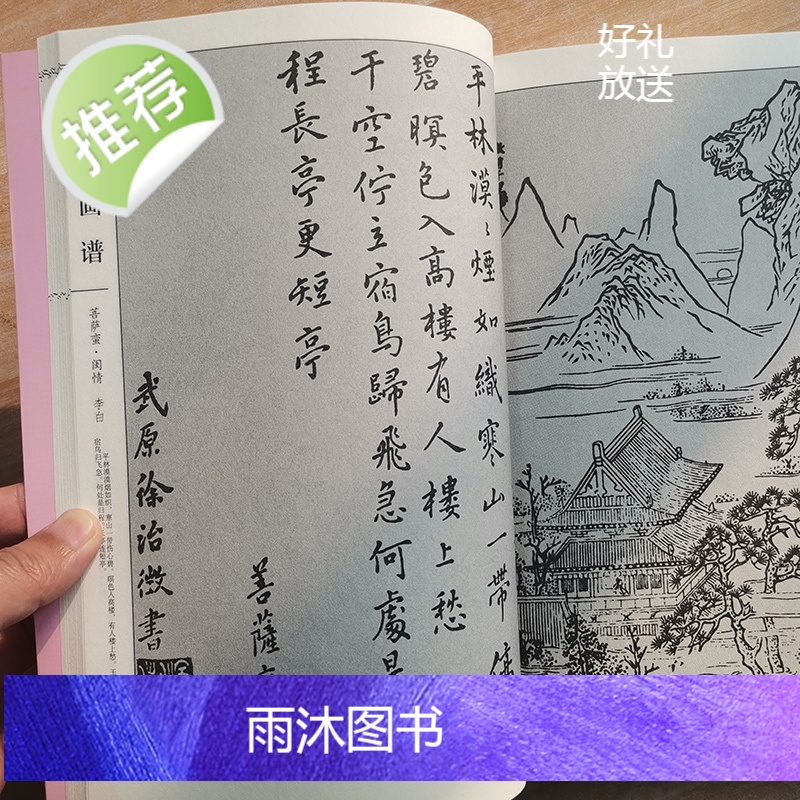 好礼
放送
推荐
画谱
菩萨蛮·闺情 李白
平林漠漠烟如织，寒山一带伤心碧。暝色入高楼，有人楼上愁。玉
宿鸟归飞急。何处是归程，
平林漠〻煙如織寒山一帶傷
碧暝色入高樓有人樓上愁
干空佇立宿鳥歸飛急何處是
程長亭更短亭
菩薩
武原徐治徵書
雨沐图书